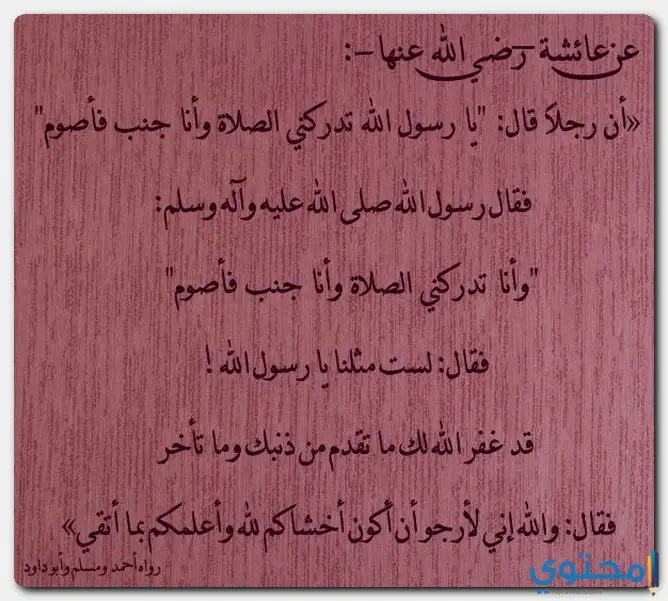 عن عائشة –رضي الله عنها–:
«أن رجلاً قال: "يا رسول الله تدركني الصلاة وأنا جنب فأصوم"
فقال رسول الله صلى الله عليه وآله وسلم:
"وأنا تدركني الصلاة وأنا جنب فأصوم"
فقال: لست مثلنا يا رسول الله !
قد غفر الله لك ما تقدم من ذنبك وما تأخر
فقال: والله إني لأرجو أن أكون أخشاكم لله وأعلمكم بما أتقي»
رواه أحمد ومسلم وأبو داود
محتوي